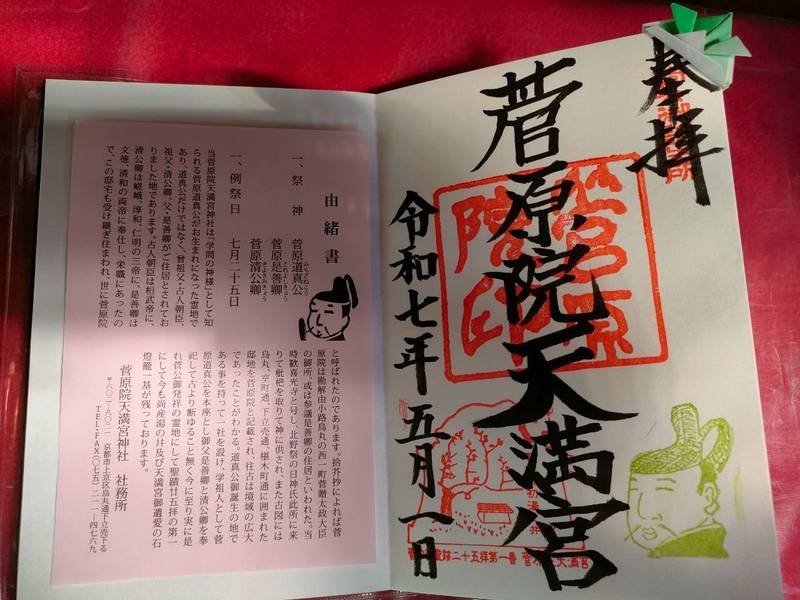 奉拝
菅原院天満宮
令和七年五月一日
菅原院印
初湯の井
由緒書
一、祭神 菅原道真公
みちざねこう
菅原是善卿
これよしきょう
菅原清公卿
きよきみきょう
一、例祭日 七月二十五日
当菅原院天満宮神社は「学問の神様」として知
られる菅原道真公がお生まれになった霊地で
あり、道真公だけではなく、曾祖父・古人朝臣、
祖父・清公卿、父・是善卿がご住居とされてお
りました地であります。古人朝臣は桓武帝に、
清公卿は嵯峨、淳和、仁明の三帝に、是善卿は
文徳、清和の両帝に奉仕し、栄職にあったの
で、この邸宅も受け継ぎ住まわれ、世に菅原院
と呼ばれたのであります。拾芥抄によれば菅
原院は勘解由小路烏丸の西一町菅贈太政大臣
の御所、或は参議是善卿の住居といわれた。当
時歓喜光寺と号し、北野祭の日神氏此所に来
りて枇杷を取りて神に供され、また古図には
烏丸、室町通、下立売通、椹木町通に囲まれた
邸地を菅原院と記載され、往古は境域の広大
であったことがわかる。道真公御誕生の地で
ある事を持って一社を設け、学祖人として菅
原道真公を本座とし御父是善卿と清公卿を奉
祀して古より断ゆること無く今に至り実に是
れ菅公御発祥の霊地にして聖蹟廿五拝の第一
にして今も尚産湯の井及び天満宮御遺愛の石
燈籠一基が残っております。
菅原院天満宮神社 社務所
〒六〇二-八〇二一 京都市上京区烏丸通下立売下る
TEL・FAX（〇七五）二一一-四七六九